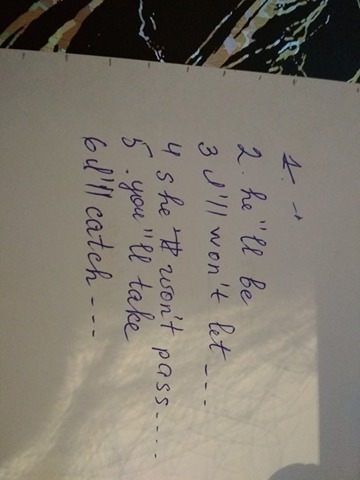 1. -
2. he"ll be
3 I'll won't let ---
4 she won't pass....
5. you"ll take
6 I'll catch ---